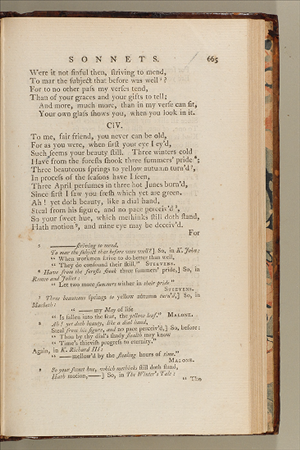 SONNETS. 665
Were it not sinful then, striving to mend,
To mar the subject that before was well ¹?
For to no other pass my verses tend,
Than of your graces and your gifts to tell;
And more, much more, than in my verse can sit,
Your own glass shows you, when you look in it.
CIV.
To me, fair friend, you never can be old,
For as you were, when first your eye I ey'd,
Such seems your beauty still. Three winters cold
Have from the forests shook three summers' pride ²;
Three beauteous springs to yellow autumn turn'd ³,
In process of the seasons have I seen,
Three April perfumes in three hot Junes burn'd,
Since first I saw you fresh which yet are green.
Ah! yet doth beauty, like a dial hand,
Steal from his figure, and no pace perceiv'd ⁴,
So your sweet hue, which methinks still doth stand,
Hath motion ⁵, and mine eye may be deceiv'd.
For
¹ —— striving to mend,
To mar the subject that before was well?] So, in K. John:
" When workmen strive to do better than well,
" They do confound their skill." STEEVENS.
² Have from the forests shook three summers' pride,] So, in
Romeo and Juliet:
" Let two more summers wither in their pride"
STEEVENS.
³ Three beauteous springs to yellow autumn turn'd,] So, in
Macbeth:
" —— my May of life
" Is fallen into the sear, the yellow leaf." MALONE.
⁴ Ah! yet doth beauty, like a dial hand,
Steal from his figure, and no pace perceiv'd,] So, before:
" Thou by thy dial's shady stealth may know
" Time's thievish progress to eternity."
Again, in K. Richard III:
" —— mellow'd by the stealing hours of time."
MALONE.
⁵ So your sweet hue, which methinks still doth stand,
Hath motion,——] So, in The Winter's Tale:
" The